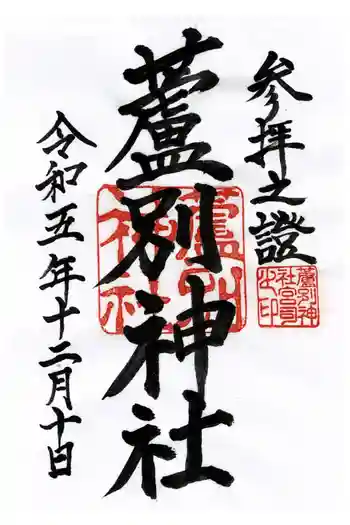 参拝之證
蘆別神社宮司之印
蘆別神社
蘆別神社
令和五年十二月十日